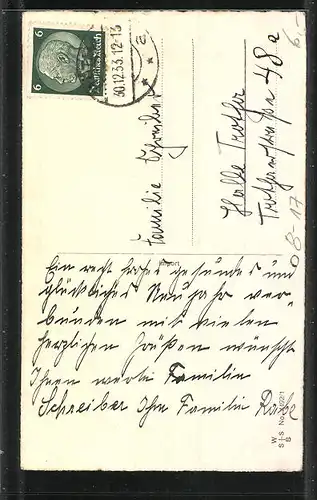 6
Deutsches Reich
6
30.12.33.12-13
a
6,-
Familie Schreiber
Halle Trotha
Trothaerstraße 48a
8-17
Ein recht frohes gesundes und
glückliches Neujahr ver-
bunden mit vielen
herzlichen Grüßen wünscht
Ihnen werte Familie
Schreiber Ihre Familie Rabe
W
S+S No.
S